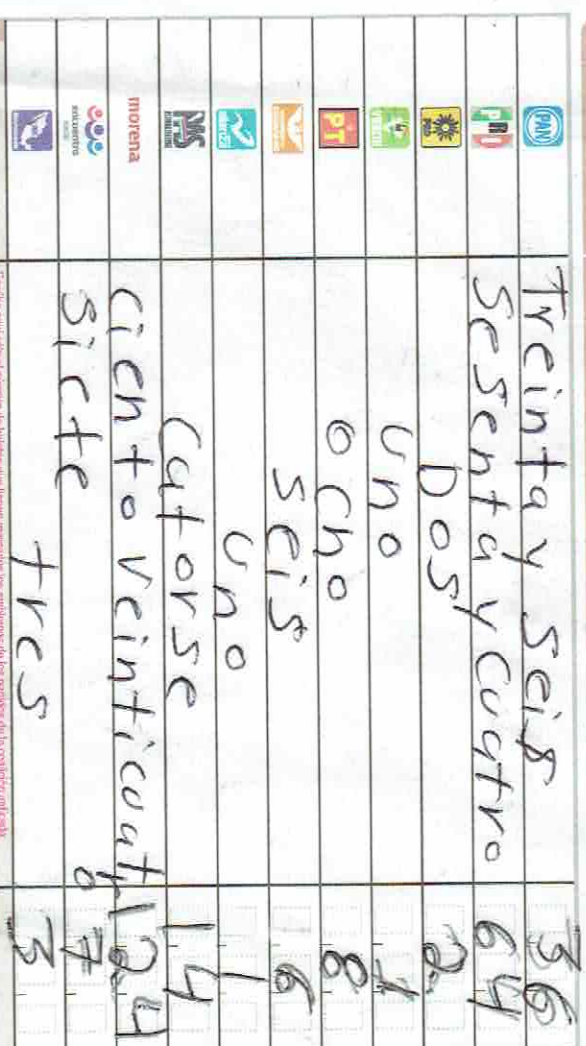 PAN Treinta y Seis 36
PRI Sesenta y Cuatro 64
PRD Dos 2
VERDE Uno 1
PT Ocho 8
Seis 6
Uno 1
MÁS Catorse 14
morena Ciento veinticuatro 124
encuentro social Siete 7
tres 3